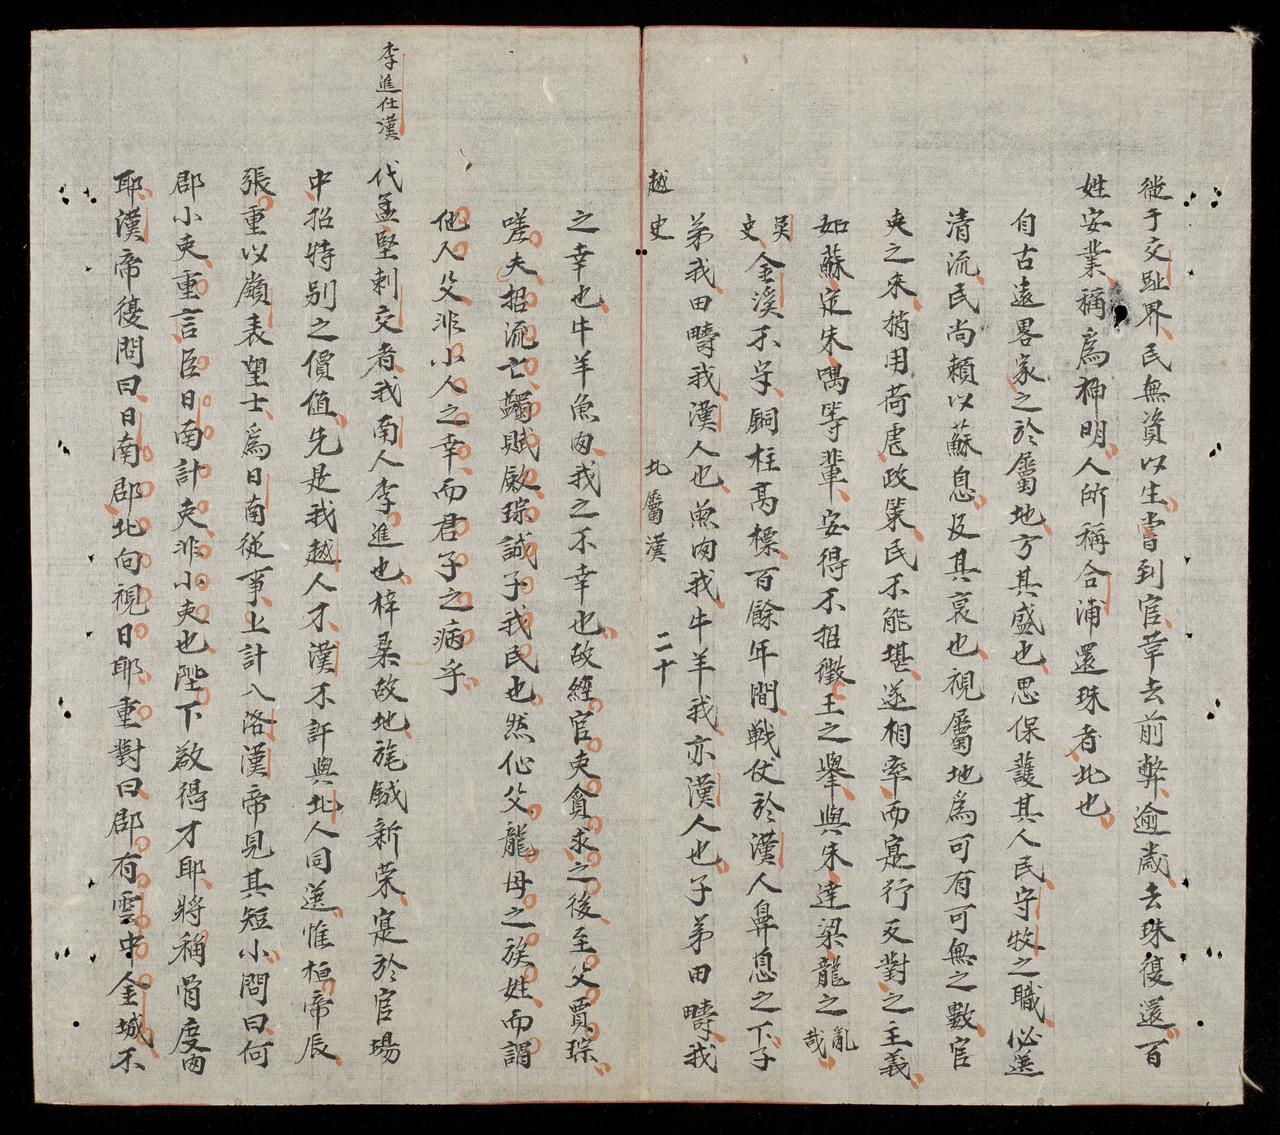 徙于交趾界民無資以生嘗到官革去前弊逾歲去珠復還百
姓安業稱爲神明人所稱合浦還珠者此也
自古遠畧家之於屬地方其盛也思保護其人民守牧之職必選
清流民尚賴以蘇息及其衰也視屬地爲可有可無之數官
吏之來稍用苛虐政策民不能堪遂相率而寔行反對之主義
如蘇定朱喁等輩安得不招徵王之舉與朱達梁龍之亂哉
吴史金溪不字銅柱高標百餘年間戦仗於漢人鼻息之下子
弟我田疇我漢人也魚肉我牛羊我亦漢人也子弟田疇我
越史 北屬漢 二十
之幸也牛羊魚肉我之不幸也故經官吏貪求之後至父賈琮
嗟夫招流亡蠲賦歛琮誠子我民也然他父龍母之族姓而謂
他人父非小人之幸而君子之病乎
李進仕漢
代孟堅刺交者我南人李進也梓桑故地旄鉞新荣寔於官場
中招特别之價值先是我越人才漢不許與北人同選惟桓帝辰
張重以嶺表望士爲日南從事上計入洛漢帝見其短小問曰何
郡小吏重言臣日南計吏非小吏也陛下欲得才耶將稱骨度肉
耶漢帝復問曰日南郡北向視日耶重對曰郡有雲中金城不